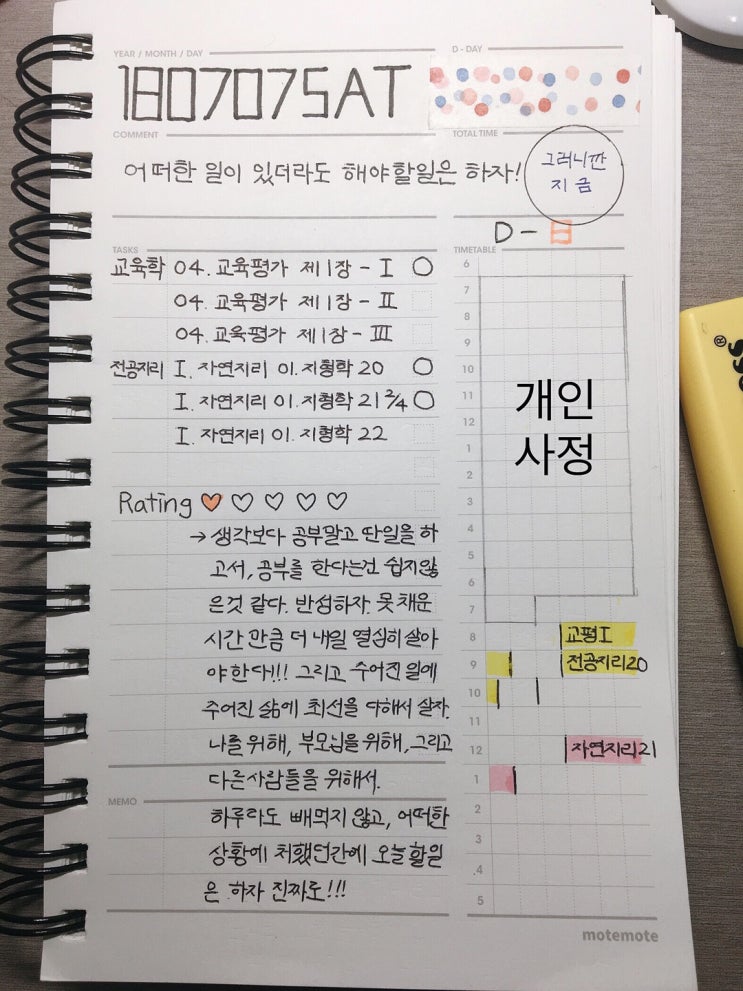 YEAR / MONTH / DAY
D - DAY
180707SAT
COMMENT
TOTAL TIME
어떠한 일이 있더라도 해야할일은 하자!
그러니깐
지금
D - 日
TASKS
TIMETABLE
교육학 04. 교육평가 제1장 - I
04. 교육평가 제1장 - II
04. 교육평가 제1장 - III
전공지리 I. 자연지리 01. 지형학 20
I. 자연지리 01. 지형학 21 2/4
I. 자연지리 01. 지형학 22
Rating
→ 생각보다 공부말고 딴일을 하
고서, 공부를 한다는건 쉽지않
은것 같다. 반성하자. 못 채운
시간 만큼 더 내일 열심히 살아
야 한다!!! 그리고 주어진 일에
주어진 삶에 최선을 다해서 살자.
나를 위해, 부모님을 위해, 그리고
다른사람들을 위해서.
MEMO
하루라도 빼먹지 않고, 어떠한
상황에 처했던간에 오늘 할일
은 하자 진짜로!!!
6
7
8
9
10
11
12
1
2
3
4
5
6
7
8
9
10
11
12
1
2
3
4
5
개인
사정
교평 I
전공지리20
자연지리21
motemote